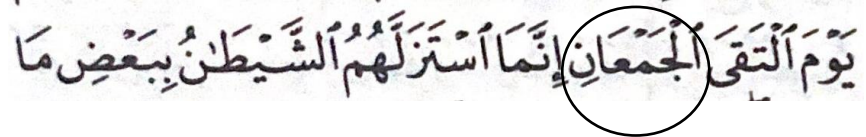 يَوْمَ ٱلْتَقَى ٱلْجَمْعَانِ إِنَّمَا ٱسْتَزَلَّهُمُ ٱلشَّيْطَـٰنُ بِبَعْضِ مَا